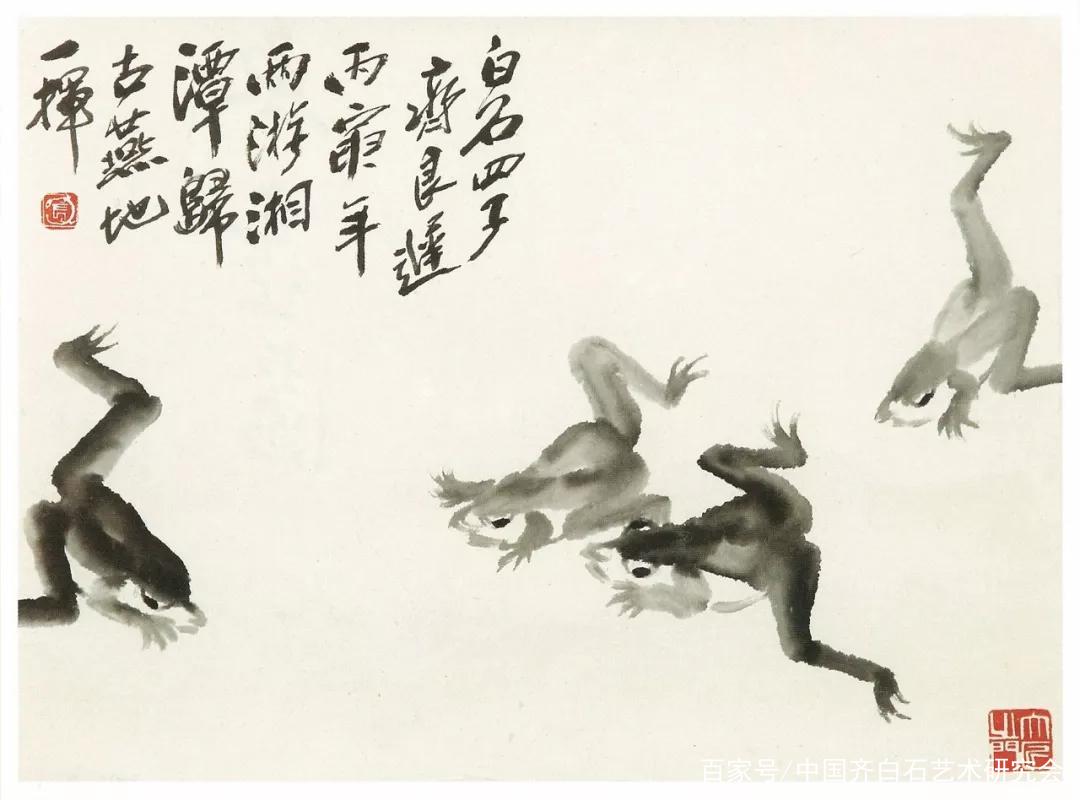 白石四子
齊良遲
丙寅年
兩游湘
潭歸
古燕地
一揮
大匠之門
百家号/中国齐白石艺术研究会